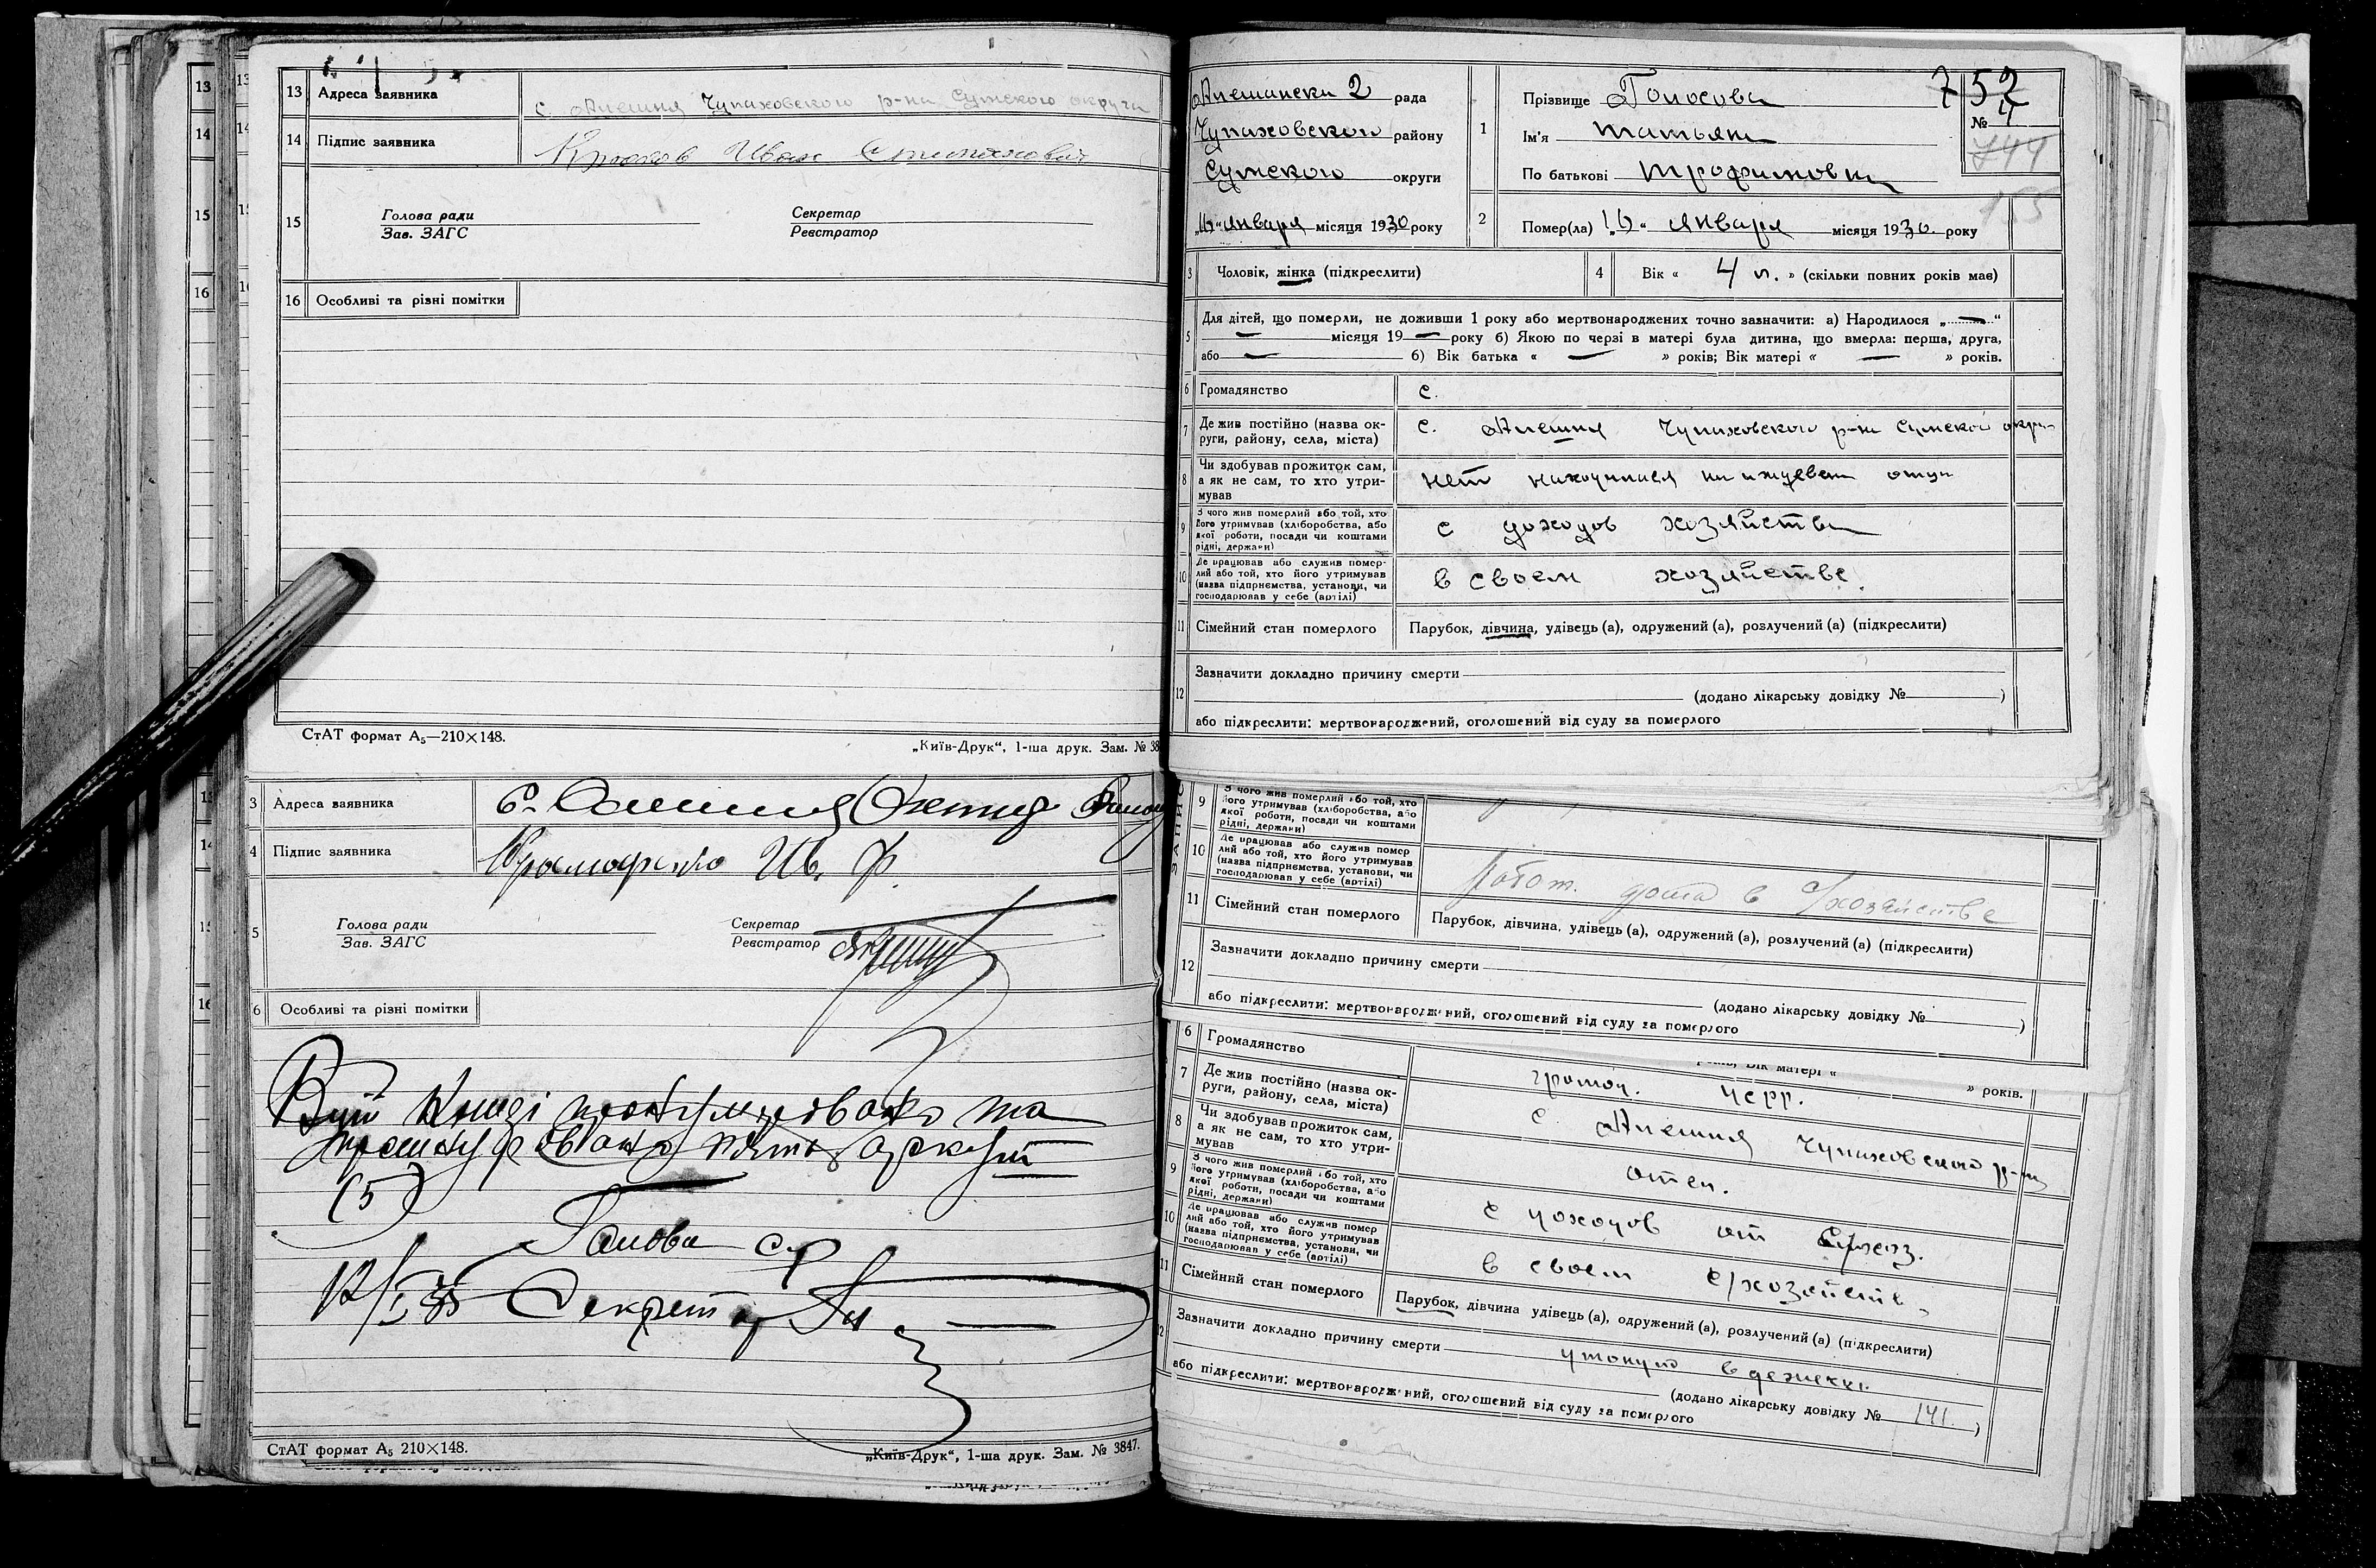 13 Адреса заявника с. Алешня Чупаховского р-на Сумского округа
14 Підпис заявника Крюков Иван
15 Голова ради Секретар
Зав. ЗАГС Реєстратор
16 Особливі та різні помітки
СтАТ формат А5—210×148. „Київ-Друк“, 1-ша друк. Зам. № 38
3 Адреса заявника с.
4 Підпис заявника Ив. Ф.
5 Голова ради Секретар
Зав. ЗАГС Реєстратор
6 Особливі та різні помітки
та
(5)
Голова с/р
Секретар
СтАТ формат А5 210×148. „Київ-Друк“, 1-ша друк. Зам. № 3847.
Алешански 2 рада
Чупаховского району
Сумского округи
„16“ января місяця 1930 року
1 Прізвище
Ім'я Татьяна
По батькові Трофимовна
752
№ 4
744
155
2 Помер(ла) „16“ января місяця 1930 року
3 Чоловік, жінка (підкреслити) 4 Вік « 4 » (скільки повних років мав)
5 Для дітей, що померли, не доживши 1 року або мертвонароджених точно зазначити: а) Народилося „—“
— місяця 19— року б) Якою по черзі в матері була дитина, що вмерла: перша, друга,
або — б) Вік батька « — » років; Вік матері « — » років.
6 Громадянство с.
7 Де жив постійно (назва ок-
руги, району, села, міста) с. Алешня Чупаховского р-на Сумской округи
8 Чи здобував прожиток сам,
а як не сам, то хто утри-
мував нет находилася на иждевен отца
9 З чого жив померлий або той, хто
його утримував (хліборобства, або
якої роботи, посади чи коштами
рідні, держави) с доходов хозяйства
10 Де працював або служив помер-
лий або той, хто його утримував
(назва підприємства, установи, чи
господарював у себе (артілі) в своем хозяйстве.
11 Сімейний стан померлого Парубок, дівчина, удівець (а), одружений (а), розлучений (а) (підкреслити)
12 Зазначити докладно причину смерти
(додано лікарську довідку № )
або підкреслити: мертвонароджений, оголошений від суду за померлого
9 З чого жив померлий або той, хто
його утримував (хліборобства, або
якої роботи, посади чи коштами
рідні, держави)
10 Де працював або служив помер
лий або той, хто його утримував
(назва підприємства, установи, чи
господарював у себе (артілі) Работ. дома в с/хозяйстве
11 Сімейний стан померлого Парубок, дівчина, удівець (а), одружений (а), розлучений (а) (підкреслити)
12 Зазначити докладно причину смерти
(додано лікарську довідку № )
або підкреслити: мертвонароджений, оголошений від суду за померлого
Вік матері « » років.
6 Громадянство
7 Де жив постійно (назва ок-
руги, району, села, міста) с. Алешня Чупаховского р-на
8 Чи здобував прожиток сам,
а як не сам, то хто утри-
мував отец.
9 З чого жив померлий або той, хто
його утримував (хліборобства, або
якої роботи, посади чи коштами
рідні, держави) с доходов от с/хоз.
10 Де працював або служив помер
лий або той, хто його утримував
(назва підприємства, установи, чи
господарював у себе (артілі) в своем с/хозяйств
11 Сімейний стан померлого Парубок, дівчина удівець (а), одружений (а), розлучений (а) (підкреслити)
12 Зазначити докладно причину смерти утонул в
(додано лікарську довідку № 141 )
або підкреслити: мертвонароджений, оголошений від суду за померлого